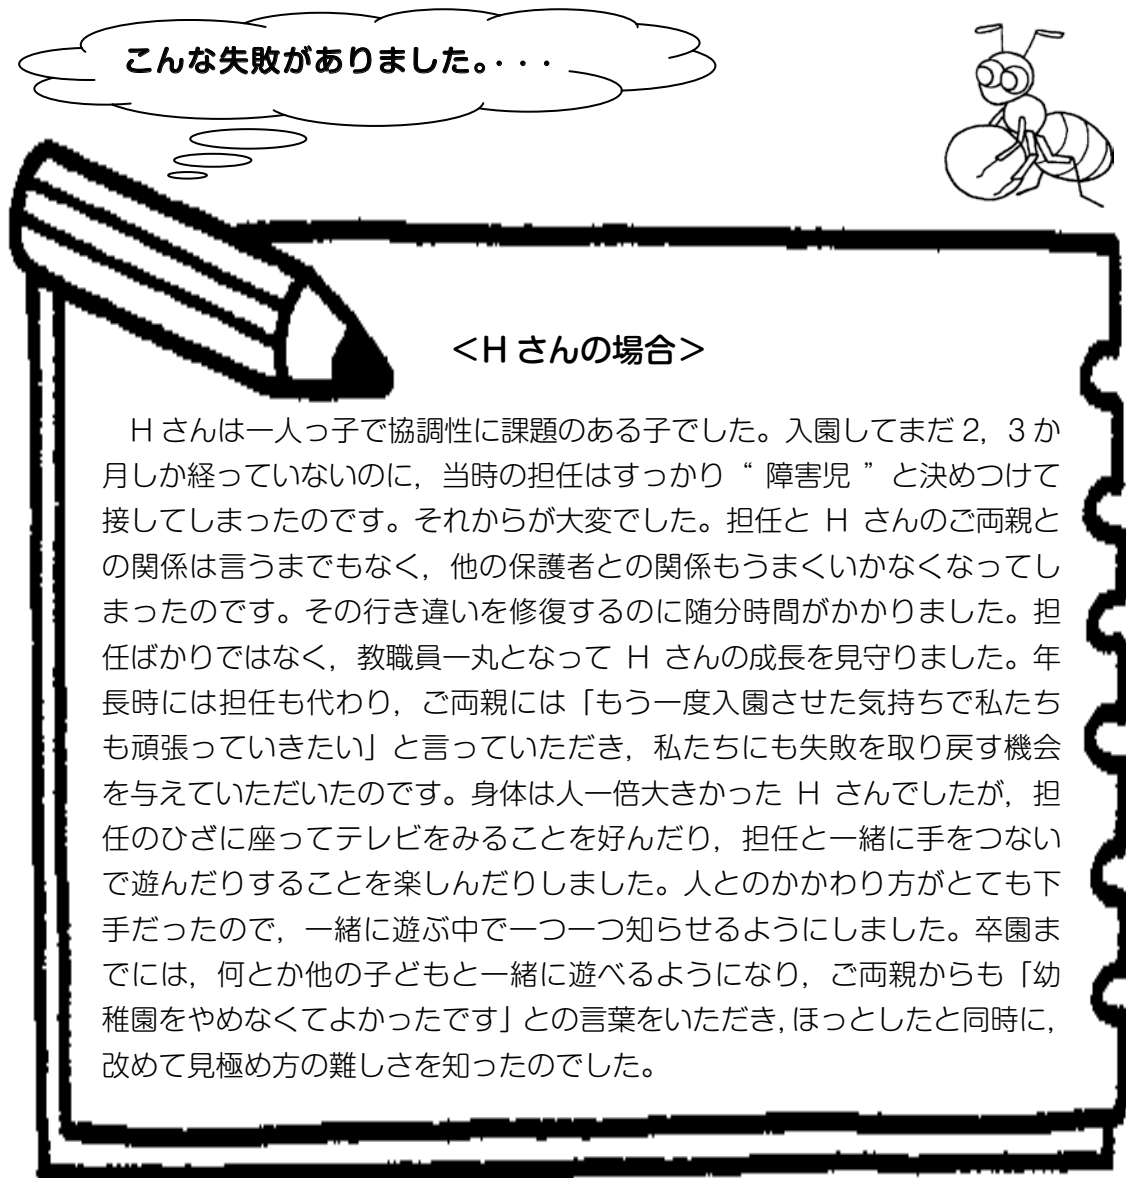 こんな失敗がありました。・・・
＜H さんの場合＞
H さんは一人っ子で協調性に課題のある子でした。入園してまだ２，３か
月しか経っていないのに，当時の担任はすっかり“ 障害児 ”と決めつけて
接してしまったのです。それからが大変でした。担任と H さんのご両親と
の関係は言うまでもなく，他の保護者との関係もうまくいかなくなってし
まったのです。その行き違いを修復するのに随分時間がかかりました。担
任ばかりではなく，教職員一丸となって H さんの成長を見守りました。年
長時には担任も代わり，ご両親には「もう一度入園させた気持ちで私たち
も頑張っていきたい」と言っていただき，私たちにも失敗を取り戻す機会
を与えていただいたのです。身体は人一倍大きかった H さんでしたが，担
任のひざに座ってテレビをみることを好んだり，担任と一緒に手をつない
で遊んだりすることを楽しんだりしました。人とのかかわり方がとても下
手だったので，一緒に遊ぶ中で一つ一つ知らせるようにしました。卒園ま
でには，何とか他の子どもと一緒に遊べるようになり，ご両親からも「幼
稚園をやめなくてよかったです」との言葉をいただき，ほっとしたと同時に，
改めて見極め方の難しさを知ったのでした。